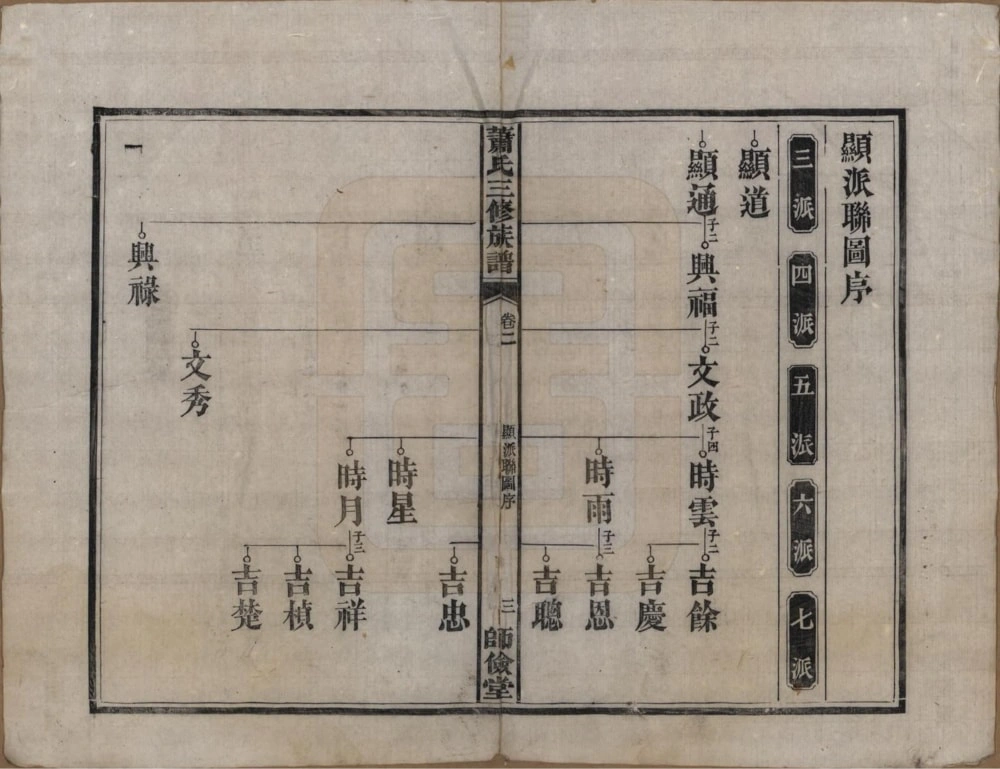 顯派聯圖序
三派 四派 五派 六派 七派
顯道
顯通 子二 興福 子二 文政 子四 時雲 子二 吉餘
吉慶
時雨 子三 吉恩
吉聰
蕭氏三修族譜 卷二 顯派聯圖序 三 師儉堂
吉忠
時星
時月 子三 吉祥
吉楨
吉楚
文秀
興祿